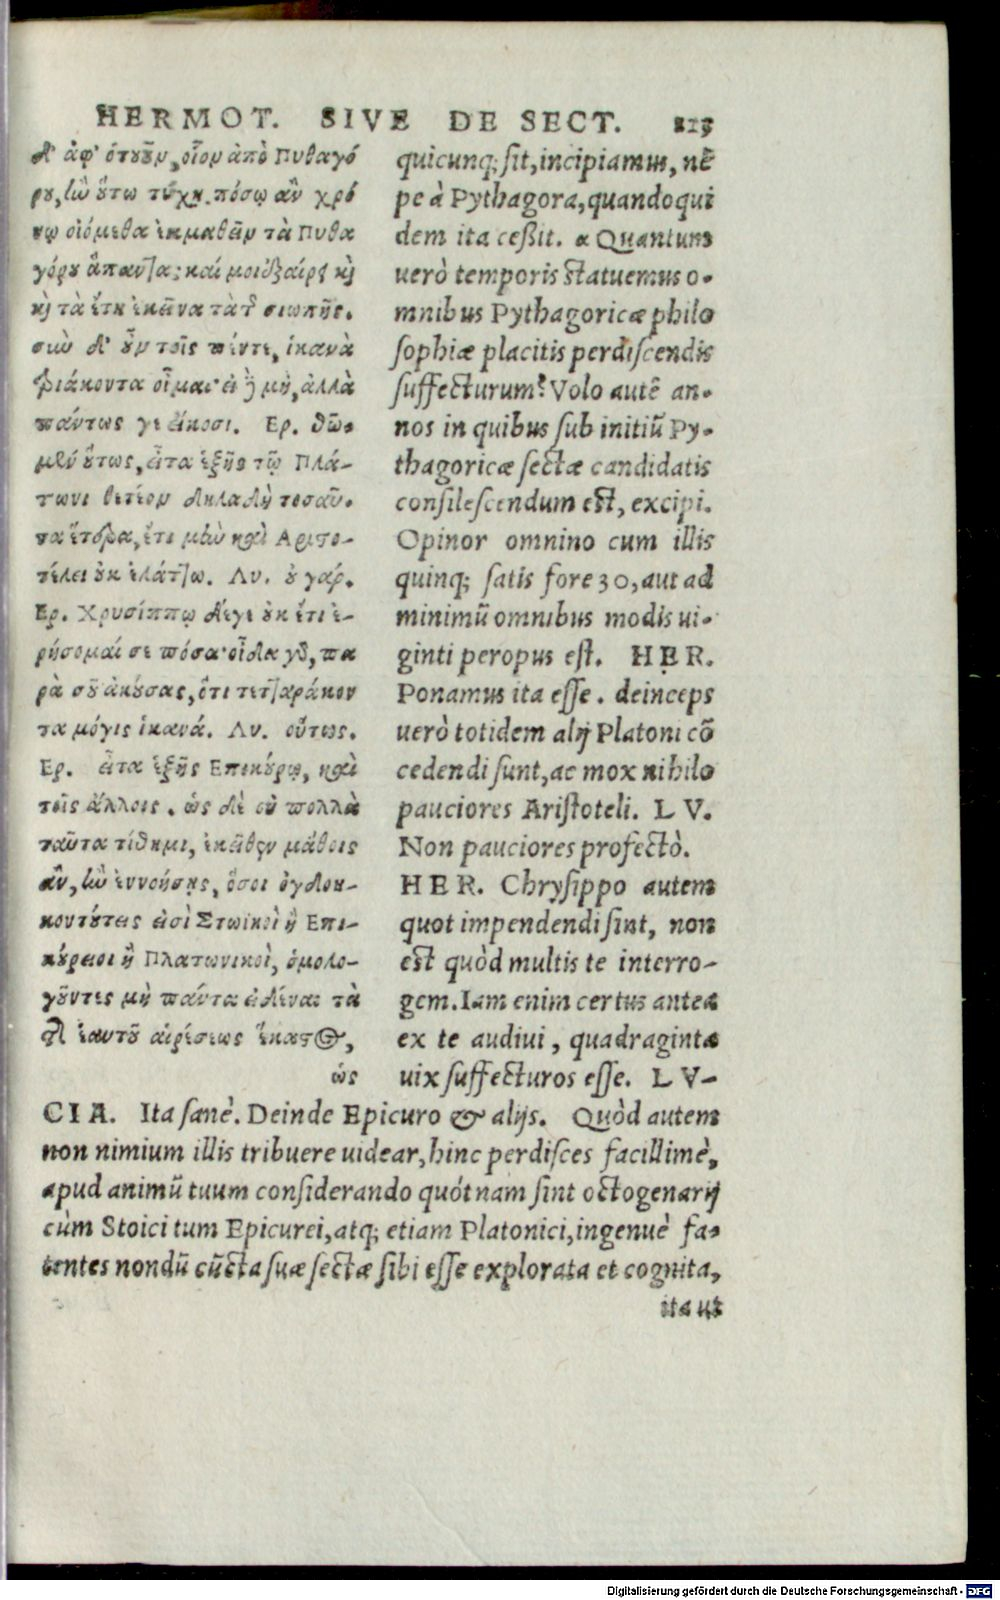 HERMOT. SIVE DE SECT. 213
δ' ἀφ' ὁτουοῦν, οἷον ἀπὸ Πυθαγό
ρου, ἢν οὕτω τύχῃ. πόσῳ ἂν χρό
νῳ οἰόμεθα ἐκμαθεῖν τὰ Πυθα
γόρου ἅπαντα; καί μοι ἐξαίρει καὶ
καὶ τὰ ἔτη ἐκεῖνα τὰ τῆς σιωπῆς.
σὺν δ' οὖν τοῖς πέντε, ἱκανὰ
τριάκοντα οἶμαι· εἰ δὲ μὴ, ἀλλὰ
πάντως γε εἴκοσι. Ερ. θῶ-
μεν οὕτως, εἶτα ἑξῆς τῷ Πλά-
τωνι θετέον δηλαδὴ τοσαῦ-
τα ἕτερα, ἔτι μὲν καὶ Αριστο-
τέλει οὐκ ἐλάττω. Λυ. οὐ γάρ.
Ερ. Χρυσίππῳ δέ γε οὐκ ἔτι ἐ-
ρήσομαί σε πόσα· οἶδα γὰρ, πα
ρὰ σοῦ ἀκούσας, ὅτι τετταράκον
τα μόγις ἱκανά. Λυ. οὕτως.
Ερ. εἶτα ἑξῆς Επικούρῳ, καὶ
τοῖς ἄλλοις. ὡς δὲ οὐ πολλὰ
ταῦτα τίθημι, ἐκεῖθεν μάθοις
ἂν, ἢν ἐννοήσῃς, ὅσοι ὀγδοη-
κοντούτεις εἰσὶ Στωϊκοὶ ἢ Επι-
κούρειοι ἢ Πλατωνικοὶ, ὁμολο-
γοῦντες μὴ πάντα εἰδέναι τὰ
τῆς ἑαυτοῦ αἱρέσεως ἕκαστος,
ὡς
quicunq; sit, incipiamus, nẽ
pe à Pythagora, quandoqui
dem ita ceßit. a Quantum
uerò temporis statuemus o-
mnibus Pythagoricæ philo
sophiæ placitis perdiscendis
suffecturum? Volo autẽ an-
nos in quibus sub initiũ Py-
thagoricæ sectæ candidatis
consilescendum est, excipi.
Opinor omnino cum illis
quinq; satis fore 30, aut ad
minimũ omnibus modis ui-
ginti peropus est. HER.
Ponamus ita esse. deinceps
uerò totidem alij Platoni cõ
cedendi sunt, ac mox nihilo
pauciores Aristoteli. LV.
Non pauciores profectò.
HER. Chrysippo autem
quot impendendi sint, non
est quòd multis te interro-
gem. Iam enim certus antea
ex te audiui, quadraginta
uix suffecturos esse. LV-
CIA. Ita sanè. Deinde Epicuro & alijs. Quòd autem
non nimium illis tribuere uidear, hinc perdisces facillimè,
apud animũ tuum considerando quót nam sint octogenarij
cùm Stoici tum Epicurei, atq; etiam Platonici, ingenuè fa-
tentes nondũ cũcta suæ sectæ sibi esse explorata et cognita,
ita ut
Digitalisierung gefördert durch die Deutsche Forschungsgemeinschaft - DFG